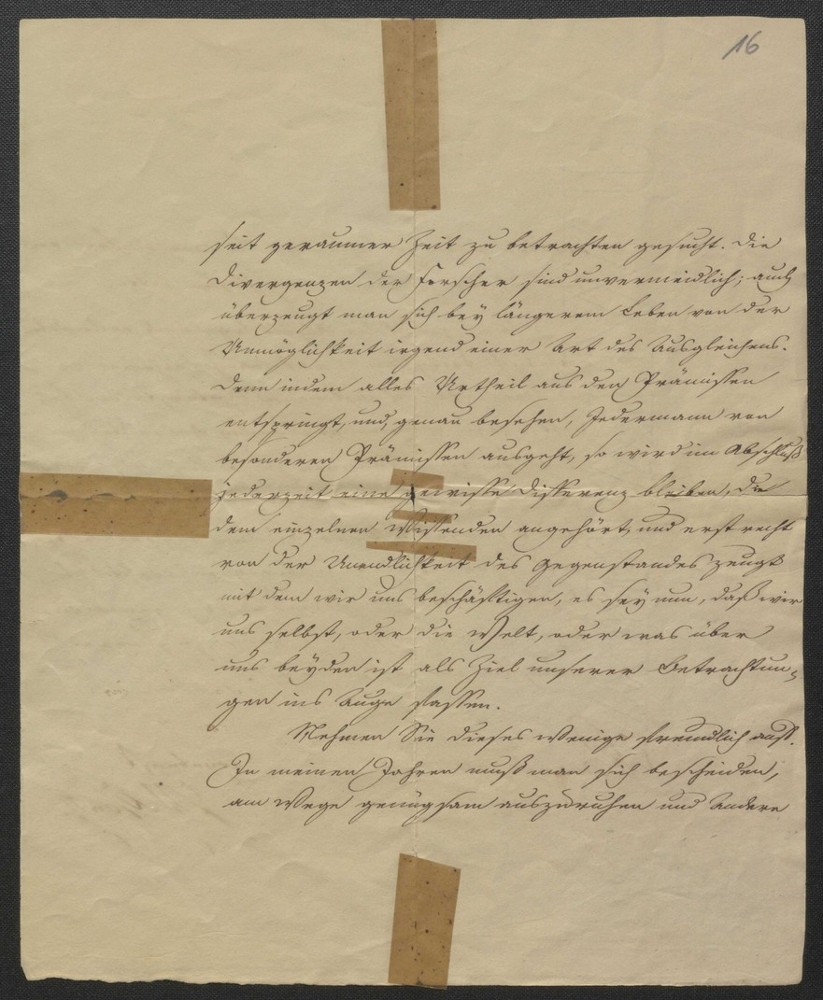 16
seit geraumer Zeit zu betrachten gesucht. Die
Divergenzen der Forscher sind unvermeidlich; auch
überzeugt man sich bey längerem Leben von der
Unmöglichkeit irgend einer Art des Ausgleichens.
Denn indem alles Urtheil aus den Prämissen
entspringt, und, genau besehen, Jedermann von
besonderen Prämissen ausgeht, so wird im Abschluß
jederzeit eine gewisse Differenz bleiben, die
dem einzelnen Wissenden angehört, und erst recht
von der Unendlichkeit des Gegenstandes zeugt
mit dem wir uns beschäftigen, es sey nun, daß wir
uns selbst, oder die Welt, oder was über
uns beyden ist als Ziel unserer Betrachtun-
gen ins Auge fassen.
Nehmen Sie dieses Wenige freundlich auf.
In meinen Jahren muß man sich bescheiden,
am Wege genügsam auszuruhen und Andere